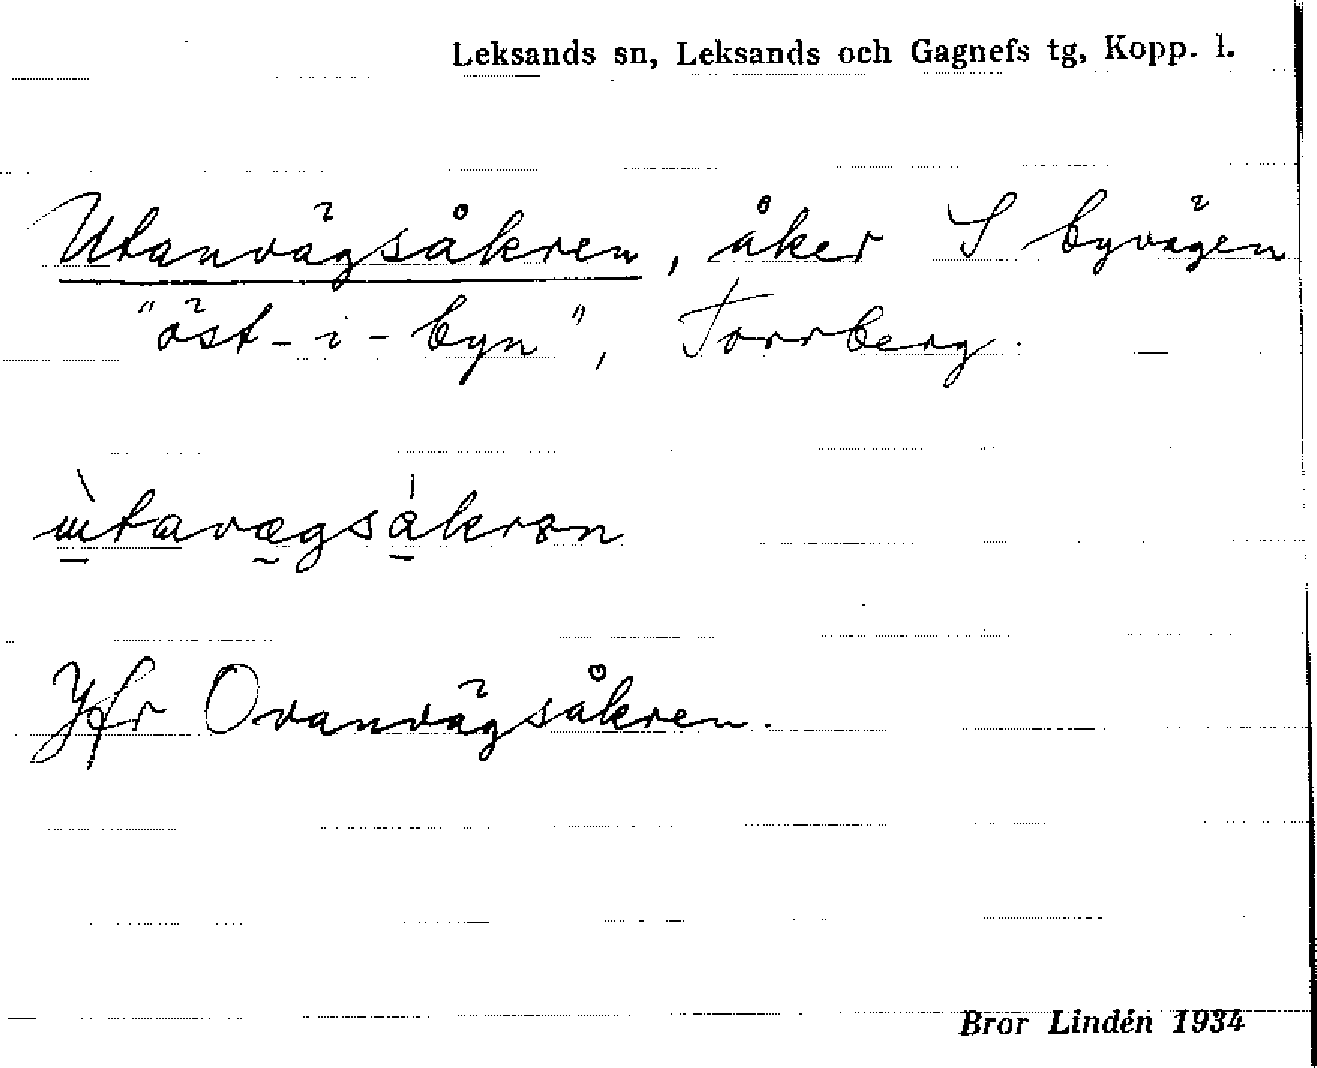 Leksands sn, Leksands och Gagnefs tg, Kopp. l.
Utanvägsåkren, åker S byvägen
"öst-i-byn", Torrberg.
ùtavægsákrən
Jfr Ovanvägsåkren.
Bror Lindén 1934